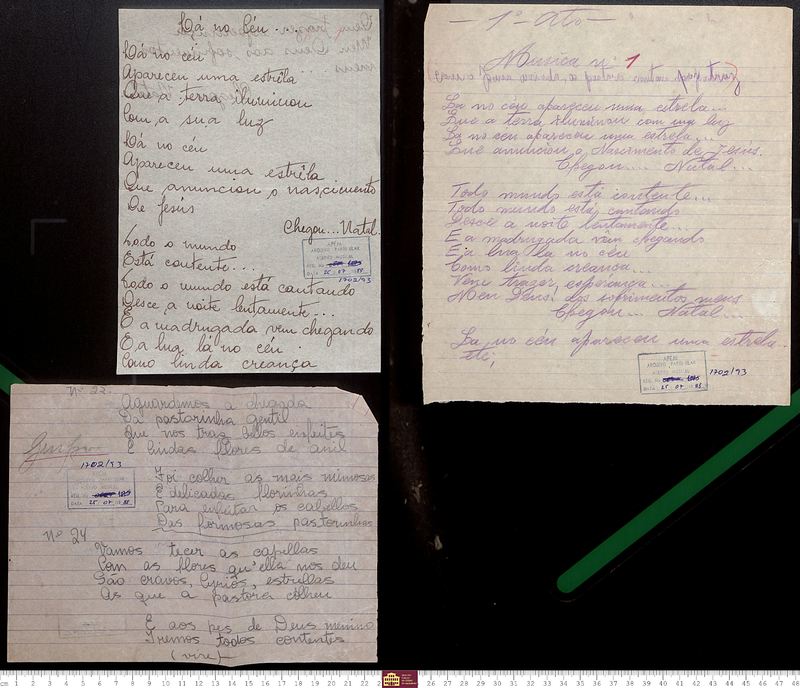 Lá no Céu...
Lá no céu
Apareceu uma estrêla
Que a terra iluminou
Com a sua luz
Lá no céu
Apareceu uma estrêla
Que anunciou o nascimento
De Jesús
Chegou... Natal.
Todo o mundo
Está contente...
Todo o mundo está cantando
Desce a noite lentamente...
E a madrugada vem chegando
E a lua, lá no céu
Como linda creança
APEJE
ARQUIVO PARTICULAR
DATA 25 07 1988
1702/93
— 1º Ato —
Musica nº 1
La no céu apareceu uma estrela...
Que a terra iluminou com sua luz
La no céu apareceu uma estrela...
Que anunciou o Nascimento de Jesus.
Chegou... Natal...
Todo mundo está contente...
Todo mundo está cantando
Desce a noite lentamente...
E a madrugada vem chegando
E a lua la no céu
Como linda creança...
Vem trazer, esperança...
Meu Deus! dos sofrimentos meus
Chegou... Natal...
La no céu apareceu uma estrela
etc,
APEJE
ARQUIVO PARTICULAR
DATA 25 07 1988
1702/93
Nº 22
Aguardemos a chegada
Da pastorinha gentil
Que nos traz bellos enfeites
E lindas flores de anil
1702/93
DATA 25 07 1988
Foi colher as mais mimosas
E delicadas florinhas
Para enfeitar os cabellos
Das formosas pastorinhas
Nº 24
Vamos tecer as capellas
Com as flores qu'ella nos deu
São cravos, lyrios, estrellas
As que a pastora colheu
E aos pes de Deus menino
Iremos todos contentes
(vire)